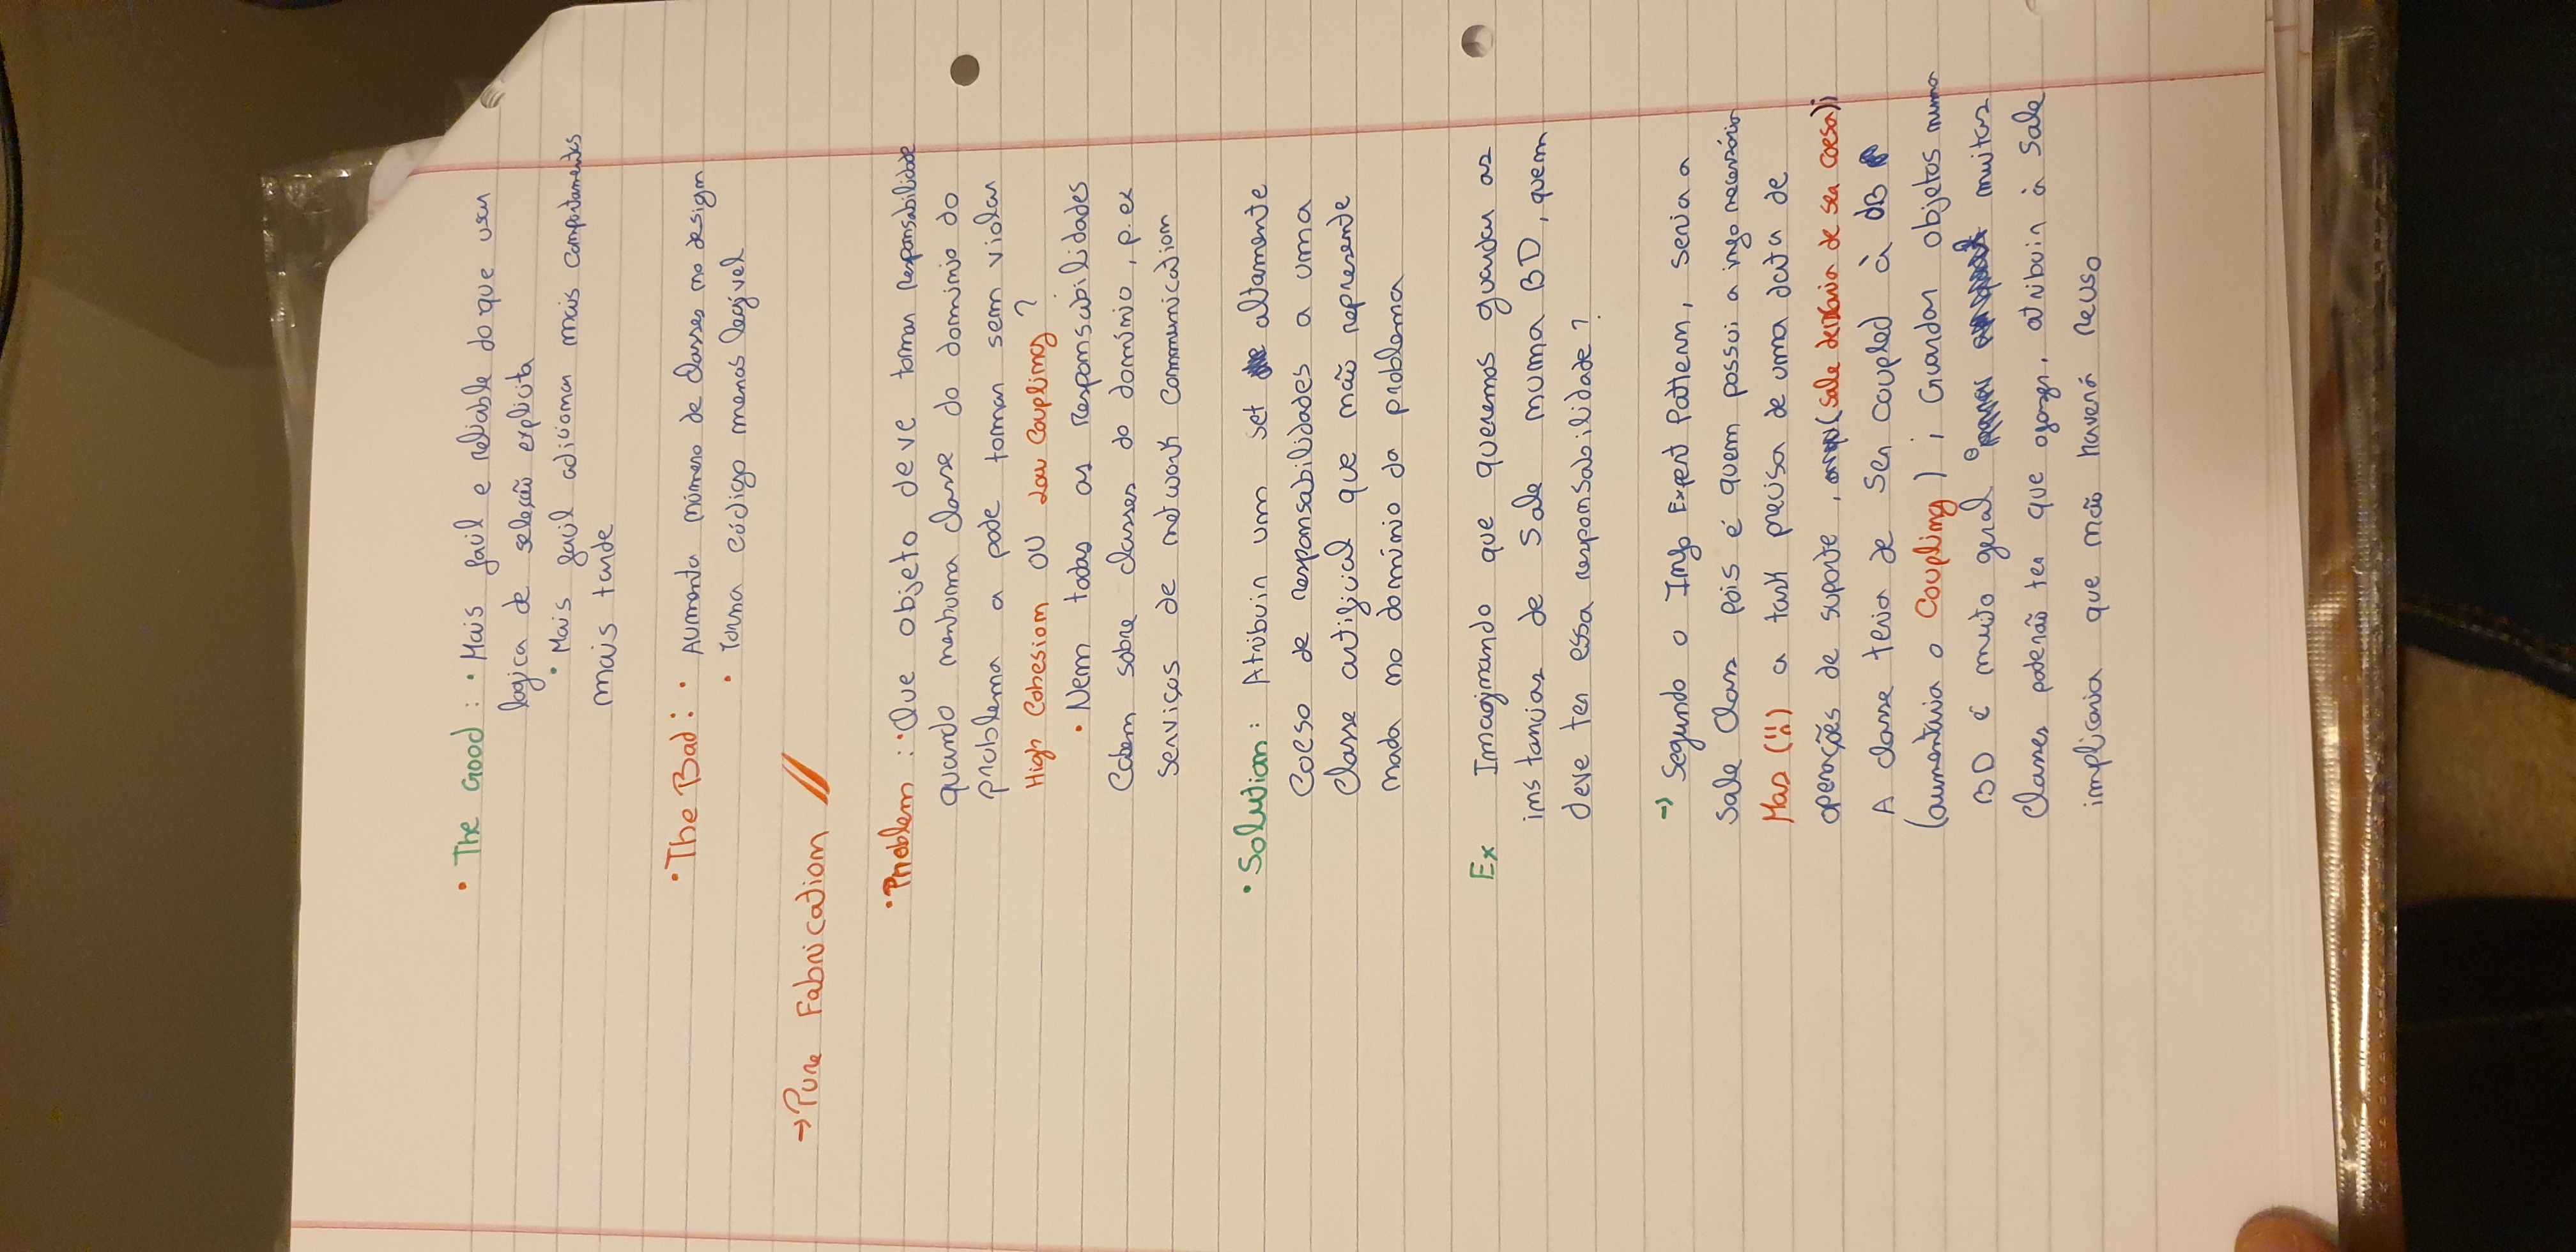 • The Good: • Mais facil e reliable do que usar
logica de seleção explicita
• Mais facil adicionar mais comportamentos
mais tarde
• The Bad: • Aumenta número de classes no design
• Torna código menos legível
→ Pure Fabrication //
• Problem: • Que objeto deve tomar responsabilidade
quando nenhuma classe do dominio do
problema a pode tomar sem violar
High Cohesion OU Low Coupling?
• Nem todas as responsabilidades
cabem sobre classes do domínio, p. ex
serviços de network communication
• Solution: Atribuir um set altamente
coeso de responsabilidades a uma
classe artificial que não represente
nada no domínio do problema
Ex Imaginando que queremos guardar as
instancias de Sale numa BD, quem
deve ter essa responsabilidade?
→ Segundo o Info Expert Pattern, seria a
Sale Class pois é quem possui a info necessária
Mas (!!) a task precisa de uma data de
operações de suporte, (Sale deixaria de ser coesa);
A classe teria de ser coupled à dB
(aumentaria o Coupling); Guardar objetos numa
BD é muito geral e muitas
classes poderão ter que o fazer. atribuir à Sale
implicaria que não haverá reuso